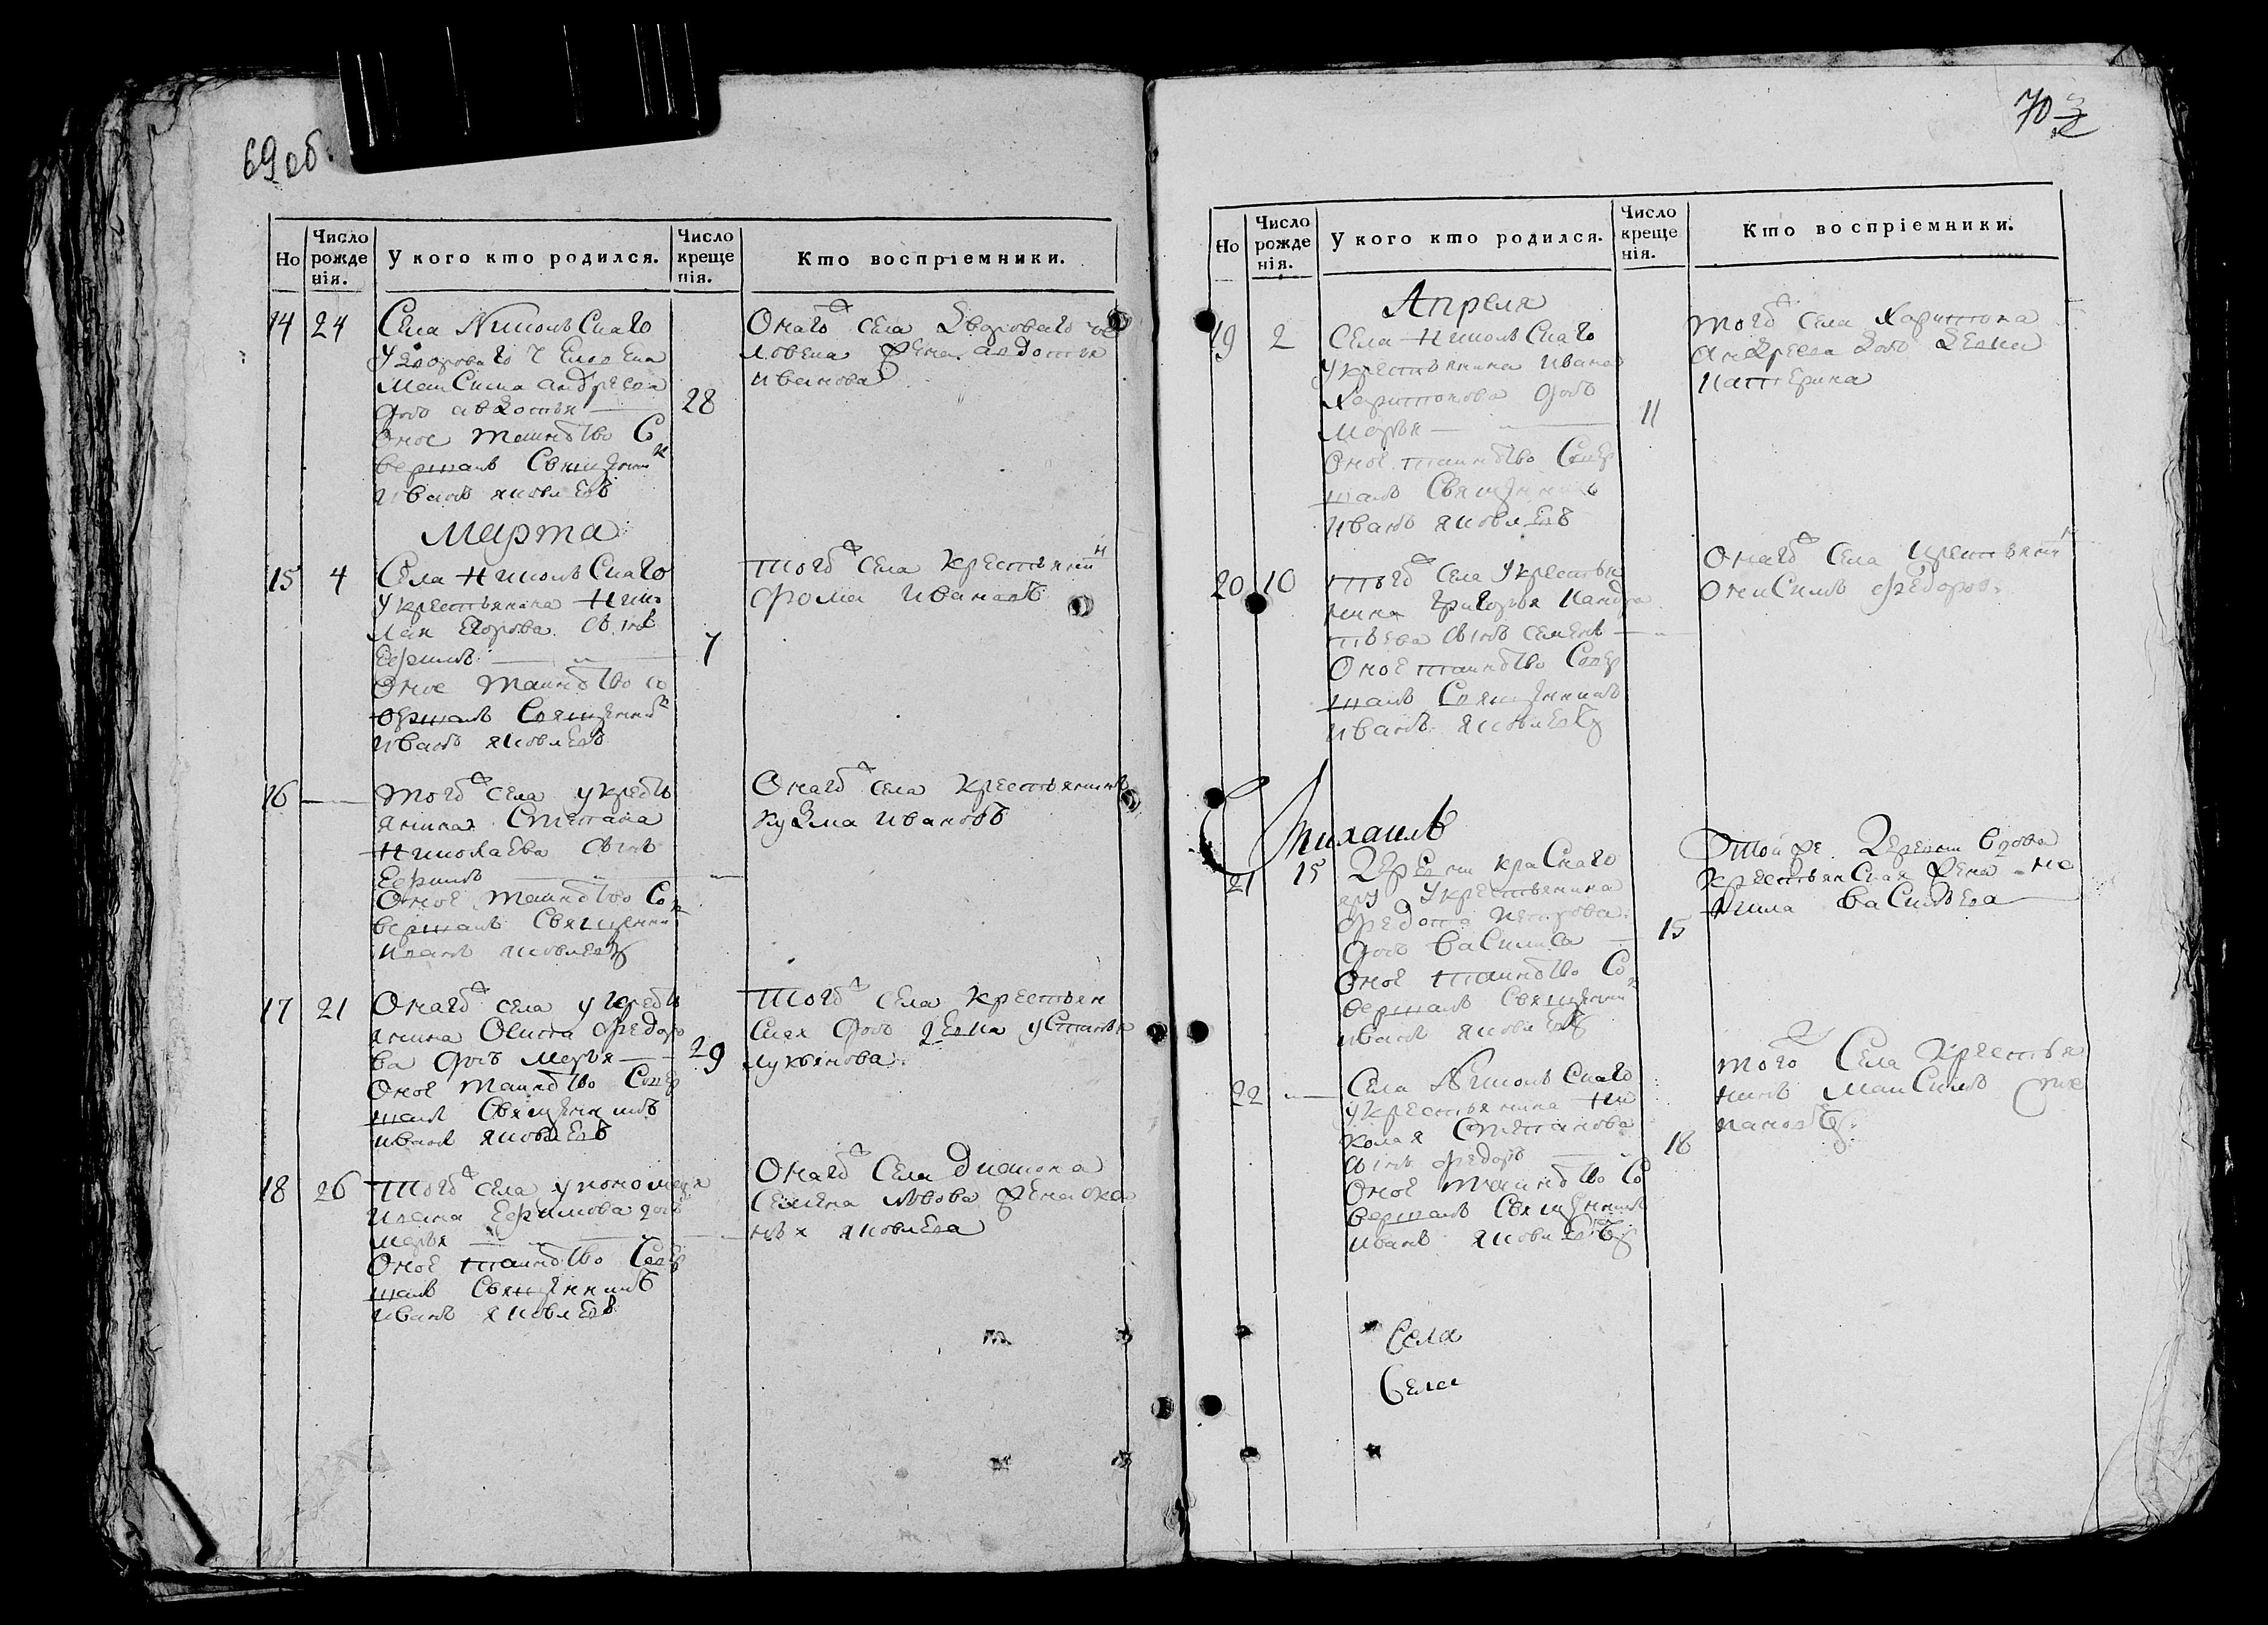 69 об.
Но
Число рожденія.
У кого кто родился.
Число крещенія.
Кто воспріемники.
14 24 Села Никольскаго
у дворова го человека
максима андреева
дочь авдотья 28
Оное таинство Со
вершалъ Священникъ
иванъ яковлевъ
Онагож села дворовагоче
ловека жена авдотья
иванова
Марта
15 4 Села Никольскаго
у крестьянина Нико
лая Егорова сынъ
Ефимъ 7
Оное таинство со
вершалъ Священникъ
иванъ яковлевъ
Тогож села крестьянинъ
фома ивановъ
16 Тогож села у кресть
янина Степана
Николаева сынъ
Ефимъ
Оное таинство Со
вершалъ Священникъ
иванъ яковлевъ
Онагож села крестьянинъ
кузма ивановъ
17 21 Онагож села у кресть
янина Осипа федоро
ва дочь марья 29
Оное таинство Совер
шалъ Священникъ
иванъ яковлевъ
Тогож села крестьян
ская дочь девка устинья
лукьянова
18 26 Тогож села у пономаря
ивана Ефимова дочь
марья
Оное таинство Совер
шалъ Священникъ
иванъ яковлевъ
Онагож Села диакона
семена львова жена
яковлева
70
Но
Число рожденія.
У кого кто родился.
Число крещенія.
Кто воспріемники.
Апреля
19 2 Села Никольскаго
у крестьянина ивана
Харитонова дочь
марья 11
Оное таинство Совер
шалъ Священникъ
иванъ яковлевъ
Тогож села Харитона
андреева дочь девка
катерина
20 10 Тогож села у крестья
нина григорья кандра
тьева сынъ семенъ
Оное таинство Совер
шалъ Священникъ
иванъ яковлевъ
Онагож села крестьянинъ
Онисимъ федоровъ
Михаилъ
21 15 Деревни краснаго
яру у крестьянина
федота петрова
дочь василиса 15
Оное таинство Со
вершалъ Священникъ
иванъ яковлевъ
Той же деревни вдова
крестьянская жена
васильева
22 Села Никольскаго
у крестьянина Ни
колая Степанова
сынъ федоръ 18
Оное таинство Со
вершалъ Священникъ
иванъ яковлевъ
того ж Села крестья
нинъ максимъ сте
пановъ
Села
Села